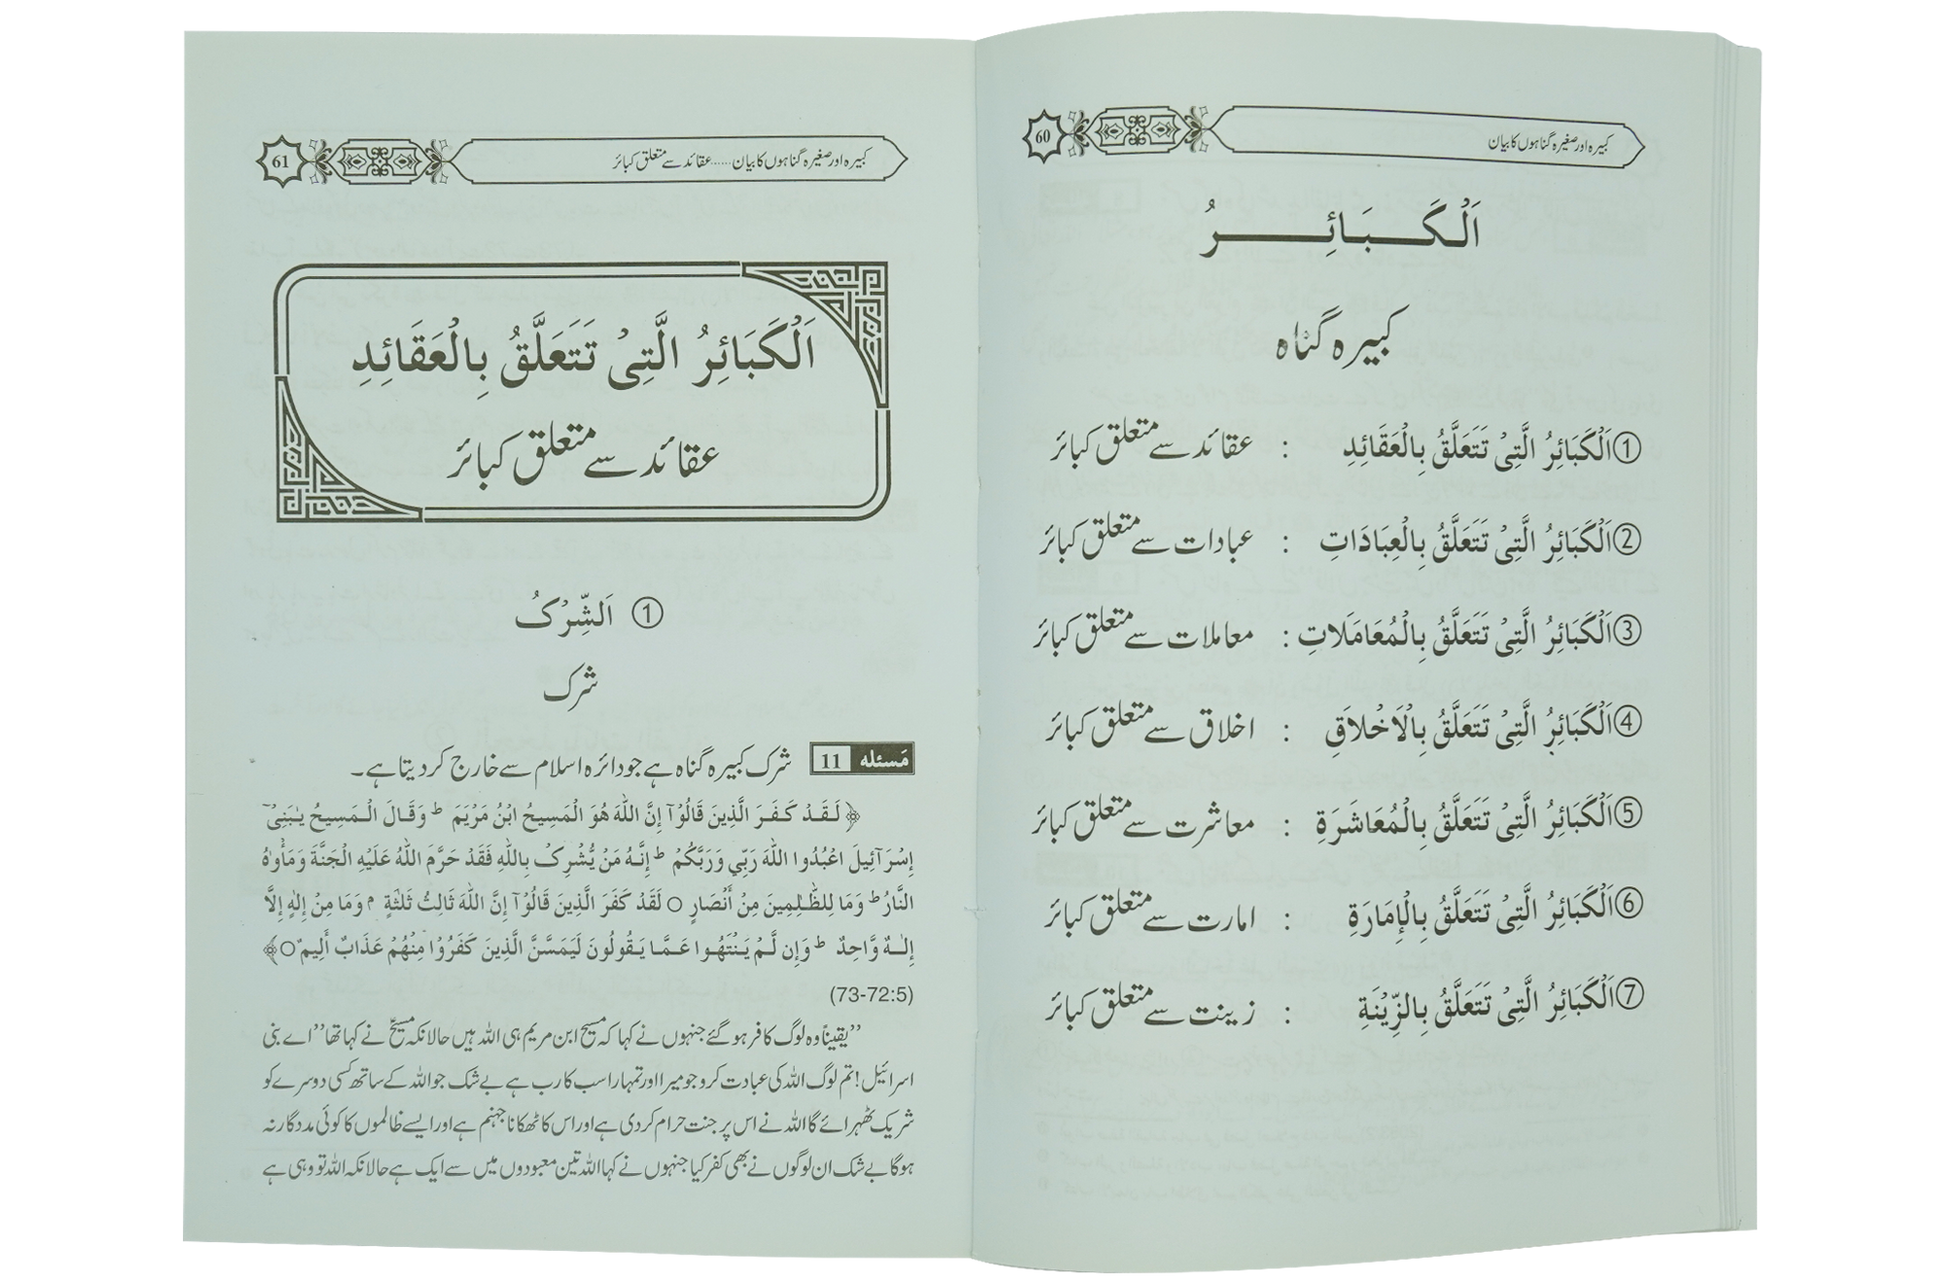 60
کبیرہ اور صغیرہ گناہوں کا بیان
اَلْکَبَائِرُ
کبیرہ گناہ
①اَلْکَبَائِرُ الَّتِیْ تَتَعَلَّقُ بِالْعَقَائِدِ : عقائد سے متعلق کبائر
②اَلْکَبَائِرُ الَّتِیْ تَتَعَلَّقُ بِالْعِبَادَاتِ : عبادات سے متعلق کبائر
③اَلْکَبَائِرُ الَّتِیْ تَتَعَلَّقُ بِالْمُعَامَلَاتِ : معاملات سے متعلق کبائر
④اَلْکَبَائِرُ الَّتِیْ تَتَعَلَّقُ بِالْاَخْلَاقِ : اخلاق سے متعلق کبائر
⑤اَلْکَبَائِرُ الَّتِیْ تَتَعَلَّقُ بِالْمُعَاشَرَةِ : معاشرت سے متعلق کبائر
⑥اَلْکَبَائِرُ الَّتِیْ تَتَعَلَّقُ بِالْإِمَارَةِ : امارت سے متعلق کبائر
⑦اَلْکَبَائِرُ الَّتِیْ تَتَعَلَّقُ بِالزِّیْنَةِ : زینت سے متعلق کبائر
61
کبیرہ اور صغیرہ گناہوں کا بیان......عقائد سے متعلق کبائر
اَلْکَبَائِرُ الَّتِیْ تَتَعَلَّقُ بِالْعَقَائِدِ
عقائد سے متعلق کبائر
① اَلشِّرْکُ
شرک
مَسئله 11 شرک کبیرہ گناہ ہے جو دائرہ اسلام سے خارج کر دیتا ہے۔
﴿لَقَدْ کَفَرَ الَّذِینَ قَالُوْآ إِنَّ اللّٰهَ هُوَ الْمَسِیحُ ابْنُ مَرْیَمَ ط وَقَالَ الْمَسِیحُ یٰبَنِیْٓ
إِسْرَآئِیلَ اعْبُدُوا اللّٰهَ رَبِّی وَرَبَّکُمْ ط إِنَّهُ مَنْ یُّشْرِکْ بِاللّٰهِ فَقَدْ حَرَّمَ اللّٰهُ عَلَیْهِ الْجَنَّةَ وَمَأْوٰهُ
النَّارُ ط وَمَا لِلظّٰلِمِینَ مِنْ أَنْصَارٍ ○ لَقَدْ کَفَرَ الَّذِینَ قَالُوْآ إِنَّ اللّٰهَ ثَالِثُ ثَلٰثَةٍ م وَمَا مِنْ إِلٰهٍ إِلَّا
إِلٰهٌ وَّاحِدٌ ط وَإِن لَّمْ یَنْتَهُوا عَمَّا یَقُولُونَ لَیَمَسَّنَّ الَّذِینَ کَفَرُوْا مِنْهُمْ عَذَابٌ أَلِیمٌ○﴾
(73-72:5)
”یقیناً وہ لوگ کافر ہو گئے جنہوں نے کہا کہ مسیح ابن مریم ہی اللہ ہیں حالانکہ مسیحؑ نے کہا تھا ”اے بنی
اسرائیل! تم لوگ اللہ کی عبادت کرو جو میرا اور تمہارا سب کا رب ہے بے شک جو اللہ کے ساتھ کسی دوسرے کو
شریک ٹھہرائے گا اللہ نے اس پر جنت حرام کر دی ہے اور اس کا ٹھکانا جہنم ہے اور ایسے ظالموں کا کوئی مددگار نہ
ہوگا بے شک ان لوگوں نے بھی کفر کیا جنہوں نے کہا اللہ تین معبودوں میں سے ایک ہے حالانکہ اللہ تو وہی ہے